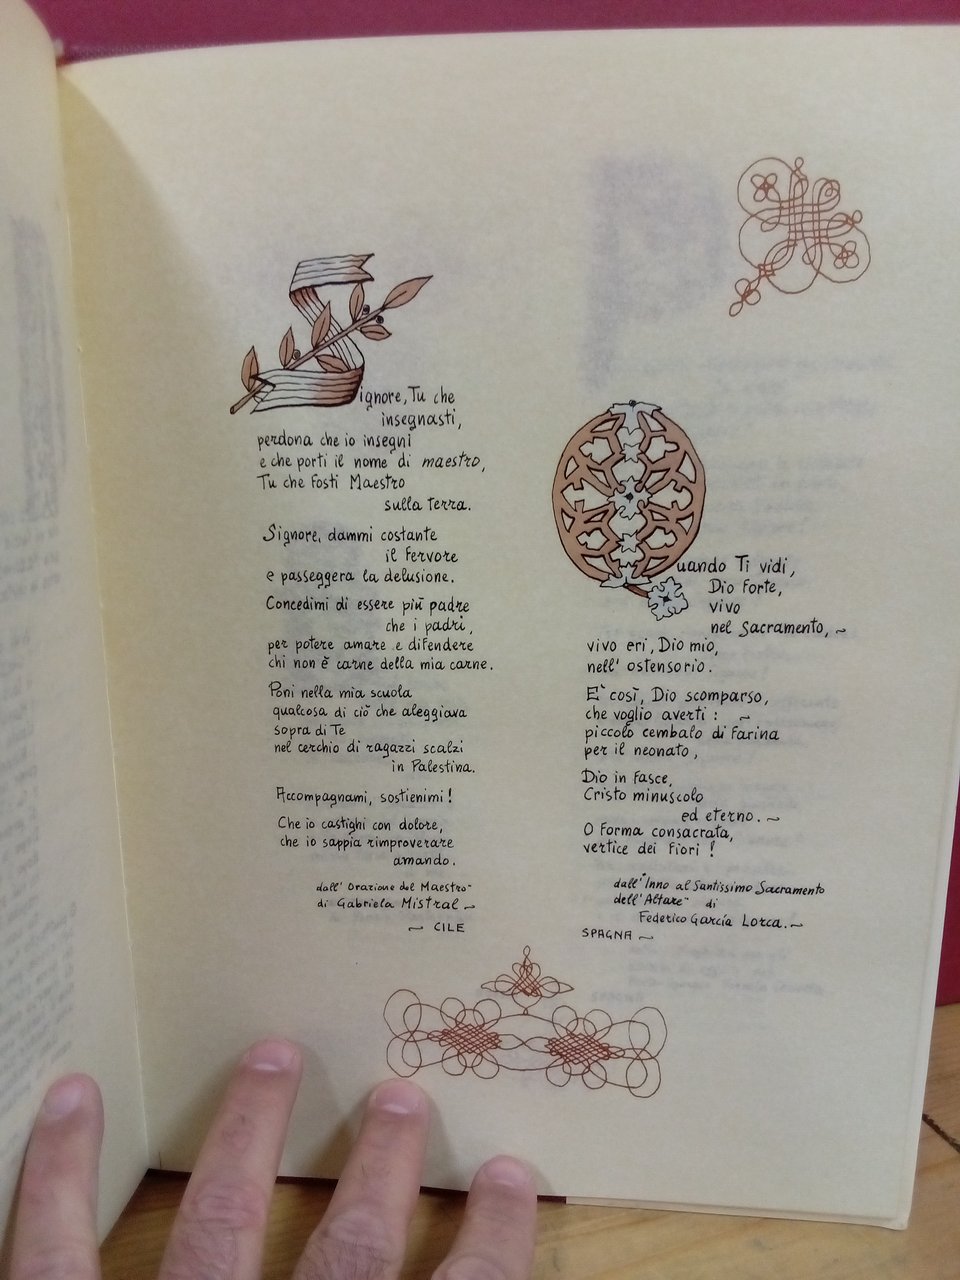 Signore, Tu che
insegnasti,
perdona che io insegni
e che porti il nome di maestro,
Tu che fosti Maestro
sulla terra.
Signore, dammi costante
il fervore
e passeggera la delusione.
Concedimi di essere più padre
che i padri,
per potere amare e difendere
chi non è carne della mia carne.
Poni nella mia scuola
qualcosa di ciò che aleggiava
sopra di Te
nel cerchio di ragazzi scalzi
in Palestina.
Accompagnami, sostienimi!
Che io castighi con dolore,
che io sappia rimproverare
amando.
dall'"Orazione del Maestro"
di Gabriela Mistral ~
~ CILE
Quando Ti vidi,
Dio forte,
vivo
nel Sacramento, ~
vivo eri, Dio mio,
nell'ostensorio.
E' così, Dio scomparso,
che voglio averti: ~
piccolo cembalo di farina
per il neonato,
Dio in fasce,
Cristo minuscolo
ed eterno. ~
O Forma consacrata,
vertice dei fiori!
dall'"Inno al Santissimo Sacramento
dell'Altare" di
Federico García Lorca. ~
SPAGNA ~